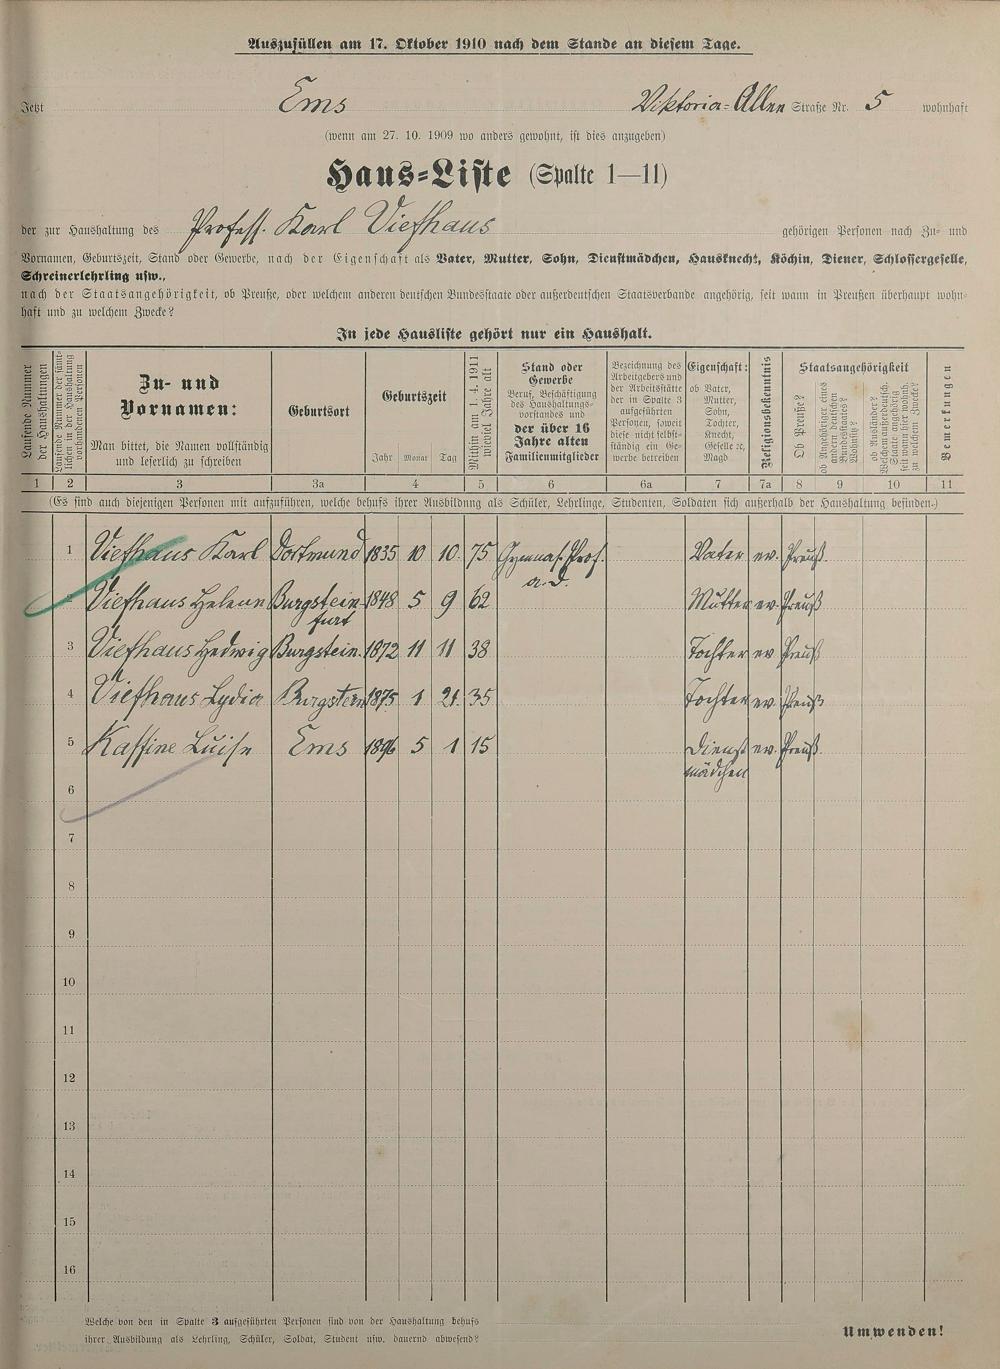 Auszufüllen am 17. Oktober 1910 nach dem Stande an diesem Tage.
Jetzt Ems Viktoria-Allee Straße Nr. 5 wohnhaft
(wenn am 27. 10. 1909 wo anders gewohnt, ist dies anzugeben)
Haus-Liste (Spalte 1—11)
der zur Haushaltung des Profess. Karl Viefhaus gehörigen Personen nach Zu- und
Vornamen, Geburtszeit, Stand oder Gewerbe, nach der Eigenschaft als Vater, Mutter, Sohn, Dienstmädchen, Hausknecht, Köchin, Diener, Schlossergeselle,
Schreinerlehrling usw.,
nach der Staatsangehörigkeit, ob Preuße, oder welchem anderen deutschen Bundesstaate oder außerdeutschen Staatsverbande angehörig, seit wann in Preußen überhaupt wohn-
haft und zu welchem Zwecke?
In jede Hausliste gehört nur ein Haushalt.
Laufende Nummer
der Haushaltungen
Laufende Nummer der sämt-
lichen in der Haushaltung
vorhandenen Personen
Zu- und
Vornamen:
Man bittet, die Namen vollständig
und leserlich zu schreiben
Geburtsort
Geburtszeit
Jahr Monat Tag
Mithin am 1. 4. 1911
wieviel Jahre alt
Stand oder
Gewerbe
Beruf, Beschäftigung
des Haushaltungs-
vorstandes und
der über 16
Jahre alten
Familienmitglieder
Bezeichnung des
Arbeitgebers und
der Arbeitsstätte
der in Spalte 3
aufgeführten
Personen, soweit
diese nicht selbst-
ständig ein Ge-
werbe betreiben
Eigenschaft:
ob Vater,
Mutter,
Sohn,
Tochter,
Knecht,
Geselle ꝛc,
Magd
Religionsbekenntnis
Staatsangehörigkeit
Ob Preuße?
ob Angehöriger eines
andern deutschen
Bundesstaates?
Wohnitz?
ob Ausländer?
Welchem außerdeutsch.
Staate angehörig
seit wann hier wohnh.
zu welchem Zwecke?
Bemerkungen
1 2 3 3a 4 5 6 6a 7 7a 8 9 10 11
(Es sind auch diejenigen Personen mit aufzuführen, welche behufs ihrer Ausbildung als Schüler, Lehrlinge, Studenten, Soldaten sich außerhalb der Haushaltung befinden.)
1 Viefhaus Karl Dortmund 1835 10 10. 75 Gymnas. Prof. Vater ev. Preuß.
a. D.
2 Viefhaus Helene Burgstein- 1848 5 9 62 Mutter ev. Preuß
furt
3 Viefhaus Hedwig Burgstein. 1872 11 11 38 Tochter ev Preuß
4 Viefhaus Lydia Burgstein 1875 1 21. 35 Tochter ev. Preuß
5 Kaffine Luise Ems 1896 5 1 15 Dienst ev. Preuß.
mädchen
6
7
8
9
10
11
12
13
14
15
16
Welche von den in Spalte 3 aufgeführten Personen sind von der Haushaltung behufs
ihrer Ausbildung als Lehrling, Schüler, Soldat, Student usw. dauernd abwesend?
Umwenden!